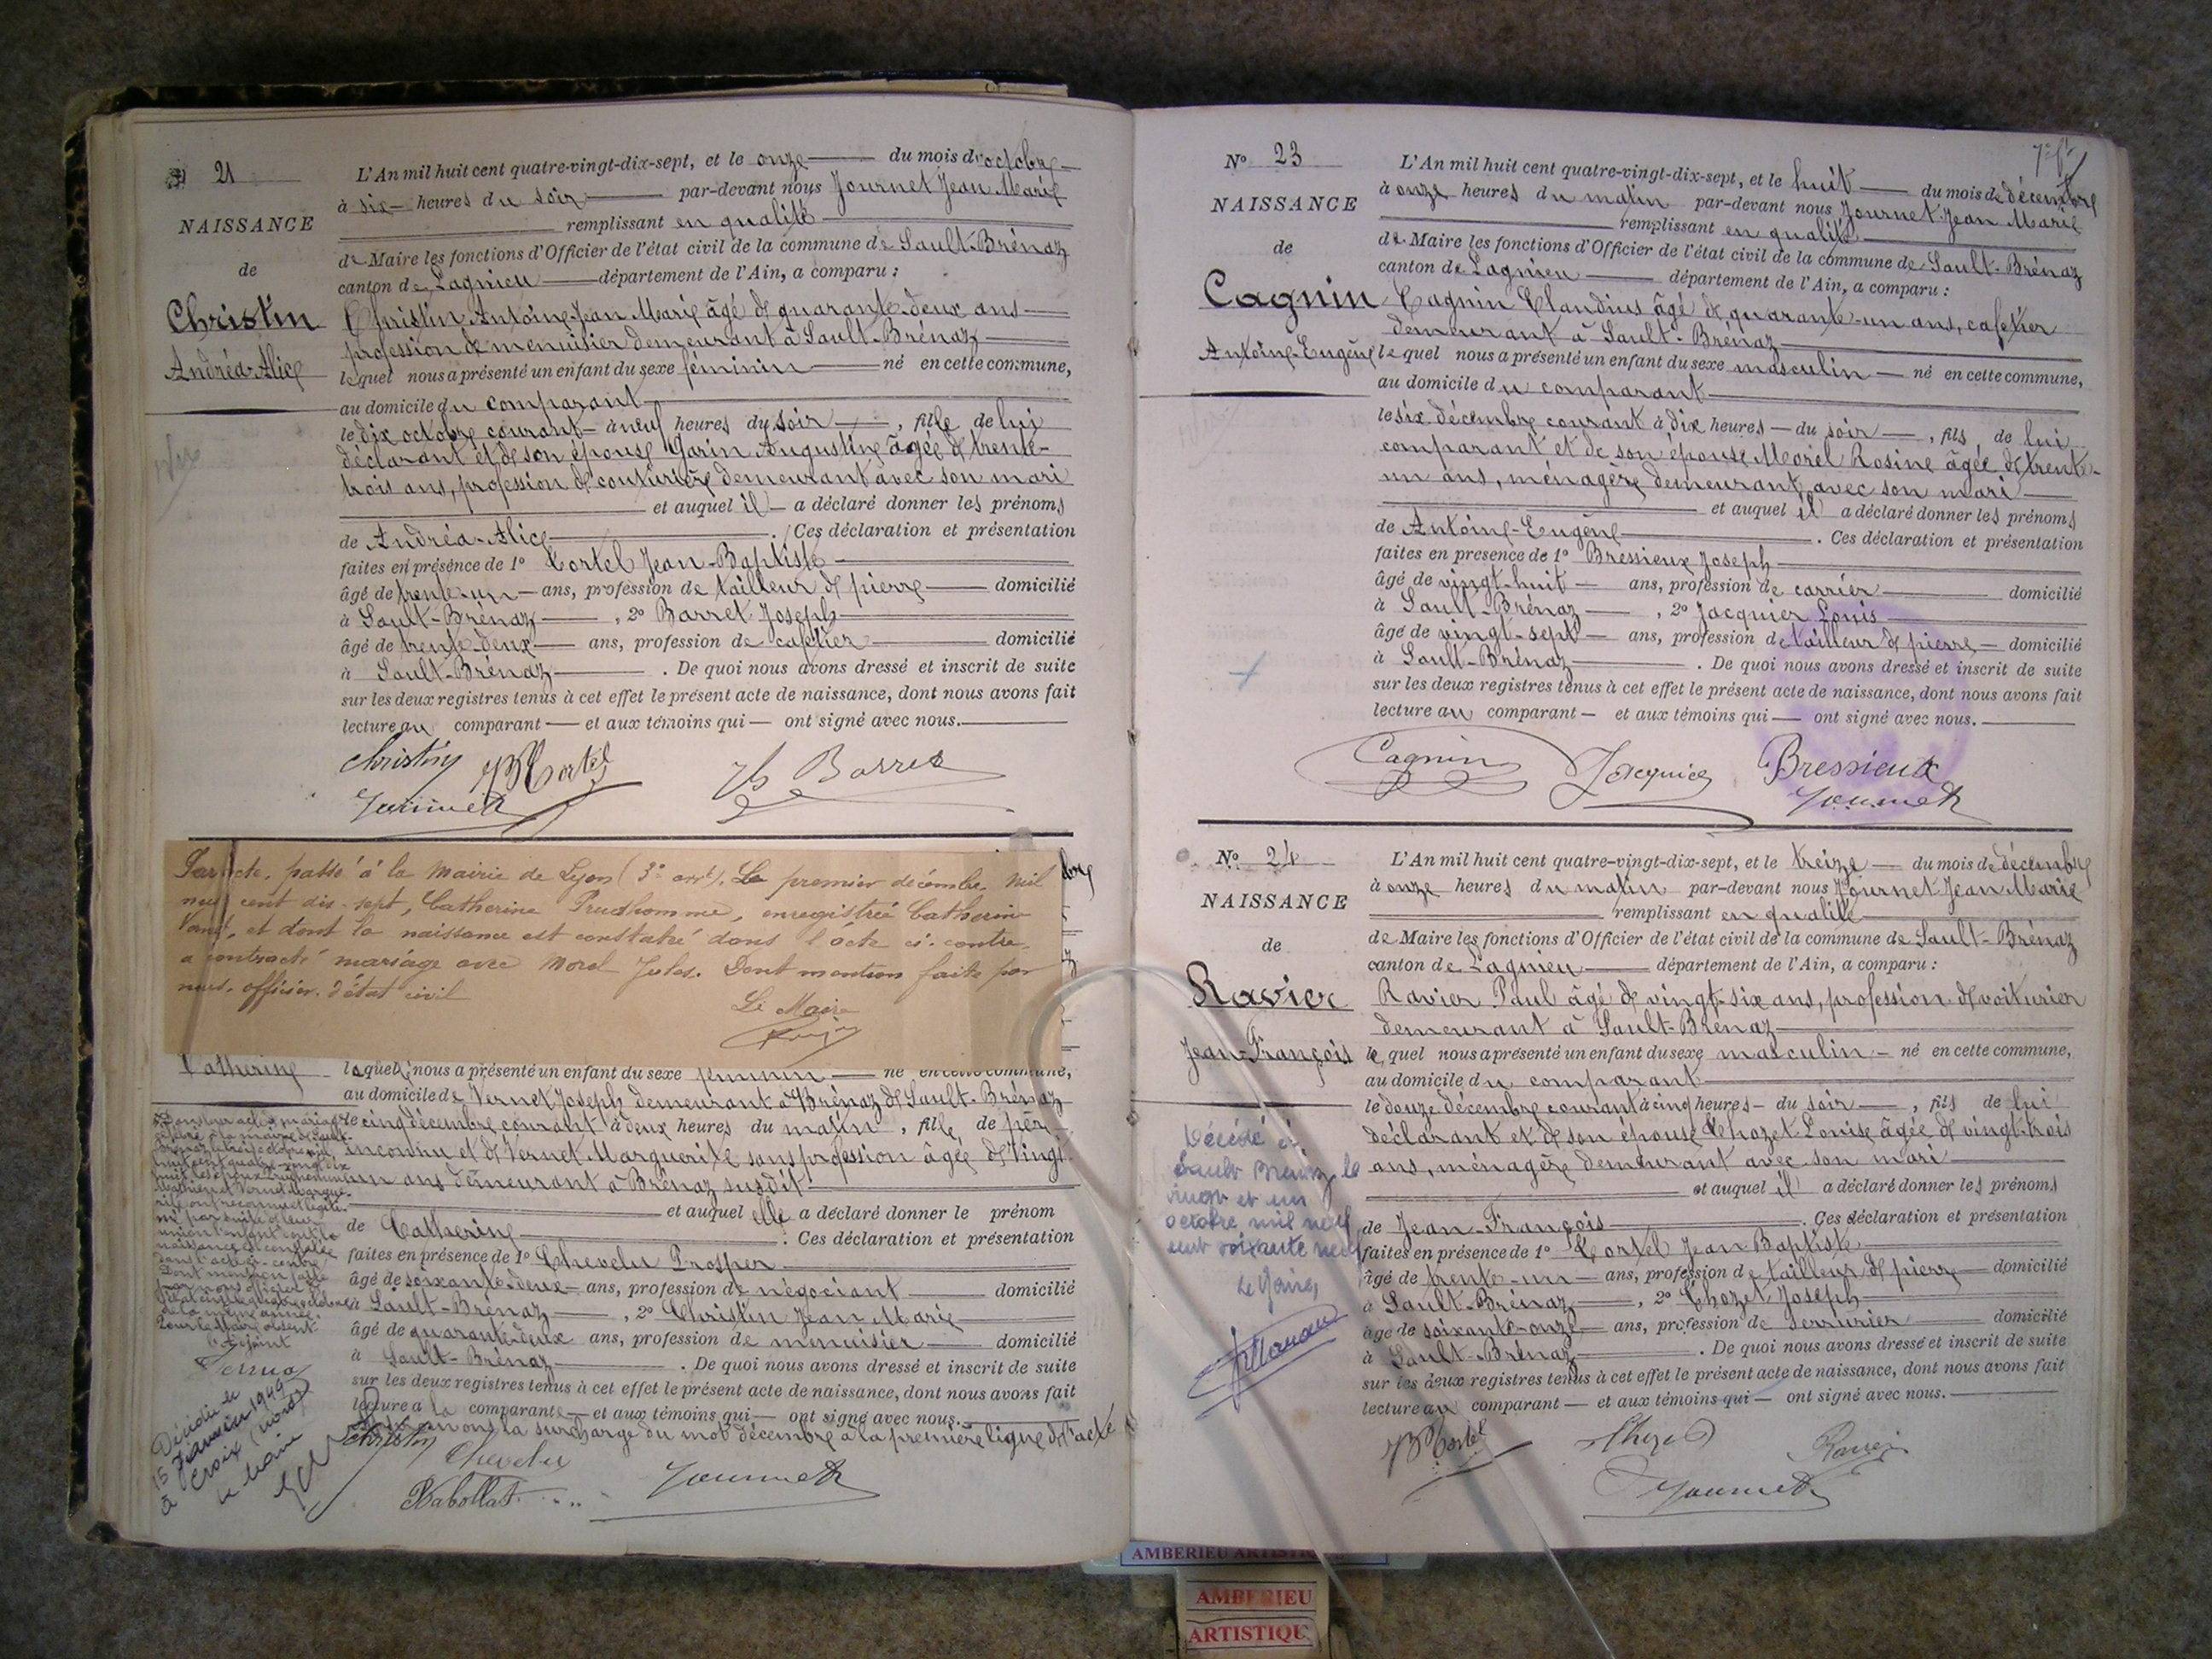 21
NAISSANCE
de
Christin
Andréa-Alice
L'An mil huit cent quatre-vingt-dix-sept, et le onze du mois d'octobre
à six heures du soir par-devant nous Journet Jean Marie
remplissant en qualité
de Maire les fonctions d'Officier de l'état civil de la commune de Sault-Brénaz
canton de Lagnieu département de l'Ain, a comparu :
Christin Antoine-Jean Marie âgé de quarante-deux ans
profession de menuisier demeurant à Sault-Brénaz
lequel nous a présenté un enfant du sexe féminin né en cette commune,
au domicile du comparant
le dix octobre courant à neuf heures du soir, fille de lui
déclarant et de son épouse Garin Augustine âgée de trente-
trois ans, profession de couturière demeurant avec son mari
et auquel il a déclaré donner les prénoms
de Andréa-Alice. Ces déclaration et présentation
faites en présence de 1° Cortel Jean-Baptiste
âgé de trente-un ans, profession de tailleur de pierre domicilié
à Sault-Brénaz, 2° Barret Joseph
âgé de trente-deux ans, profession de cafetier domicilié
à Sault-Brénaz. De quoi nous avons dressé et inscrit de suite
sur les deux registres tenus à cet effet le présent acte de naissance, dont nous avons fait
lecture au comparant et aux témoins qui ont signé avec nous.
Christin JB Cortel Jh Barret
Journet
Par acte, passé à la Mairie de Lyon (3e arrt). Le premier décembre mil
neuf cent dix-sept, Catherine Prudhomme, enregistrée Catherine
et dont la naissance est constatée dans l'acte ci-contre,
a contracté mariage avec Morel Jules. Dont mention faite par
nous, officier d'état civil
Le Maire
Catherine
laquelle nous a présenté un enfant du sexe féminin né en cette commune,
au domicile de Vernet Joseph demeurant à Brénaz de Sault-Brénaz
le cinq décembre courant à deux heures du matin, fille de père
inconnu et de Vernet Marguerite sans profession âgée de vingt-
un ans demeurant à Brénaz susdit
et auquel elle a déclaré donner le prénom
de Catherine. Ces déclaration et présentation
faites en présence de 1° Chevelu Prosper
âgé de soixante-deux ans, profession de négociant domicilié
à Sault-Brénaz, 2° Christin Jean Marie
âgé de quarante-deux ans, profession de menuisier domicilié
à Sault-Brénaz. De quoi nous avons dressé et inscrit de suite
sur les deux registres tenus à cet effet le présent acte de naissance, dont nous avons fait
lecture a la comparante et aux témoins qui ont signé avec nous.
la surcharge du mot décembre à la première ligne de l'acte
Christin Chevelu Journet
naissance est constatée
dans l'acte ci-contre
Dont mention faite
de la même année
Pour le Maire absent
l'adjoint
Décédée le
15 Janvier 1949
à Croix (Nord)
Le Maire
N° 23
NAISSANCE
de
Cagnin
Antoine-Eugène
L'An mil huit cent quatre-vingt-dix-sept, et le huit du mois de décembre
à onze heures du matin par-devant nous Journet Jean Marie
remplissant en qualité
de Maire les fonctions d'Officier de l'état civil de la commune de Sault-Brénaz
canton de Lagnieu département de l'Ain, a comparu :
Cagnin Claudius âgé de quarante-un ans, cafetier
demeurant à Sault-Brénaz
lequel nous a présenté un enfant du sexe masculin né en cette commune,
au domicile du comparant
le six décembre courant à dix heures du soir, fils de lui
comparant et de son épouse Morel Rosine âgée de trente-
un ans, ménagère demeurant avec son mari
et auquel il a déclaré donner les prénoms
de Antoine-Eugène. Ces déclaration et présentation
faites en présence de 1° Bressieux Joseph
âgé de vingt-huit ans, profession de carrier domicilié
à Sault-Brénaz, 2° Jacquier Louis
âgé de vingt-sept ans, profession de tailleur de pierre domicilié
à Sault-Brénaz. De quoi nous avons dressé et inscrit de suite
sur les deux registres tenus à cet effet le présent acte de naissance, dont nous avons fait
lecture au comparant et aux témoins qui ont signé avec nous.
Cagnin Jacquier Bressieux
Journet
N° 24
NAISSANCE
de
Ravier
Jean-François
L'An mil huit cent quatre-vingt-dix-sept, et le treize du mois de décembre
à onze heures du matin par-devant nous Journet Jean Marie
remplissant en qualité
de Maire les fonctions d'Officier de l'état civil de la commune de Sault-Brénaz
canton de Lagnieu département de l'Ain, a comparu :
Ravier Paul âgé de vingt-six ans, profession de voiturier
demeurant à Sault-Brénaz
lequel nous a présenté un enfant du sexe masculin né en cette commune,
au domicile du comparant
le douze décembre courant à cinq heures du soir, fils de lui
déclarant et de son épouse Chozet Louise âgée de vingt-trois
ans, ménagère demeurant avec son mari
et auquel il a déclaré donner les prénoms
de Jean-François. Ces déclaration et présentation
faites en présence de 1° Cortel Jean Baptiste
âgé de trente-un ans, profession de tailleur de pierre domicilié
à Sault-Brénaz, 2° Chozet Joseph
âgé de soixante-onze ans, profession de serrurier domicilié
à Sault-Brénaz. De quoi nous avons dressé et inscrit de suite
sur les deux registres tenus à cet effet le présent acte de naissance, dont nous avons fait
lecture au comparant et aux témoins qui ont signé avec nous.
JB Cortel Chozet Ravier
Journet
Décédé à
Sault Brénaz le
vingt et un
octobre mil neuf
cent soixante neuf
Le Maire,
AMBERIEU ARTISTIQUE
AMBERIEU
ARTISTIQU